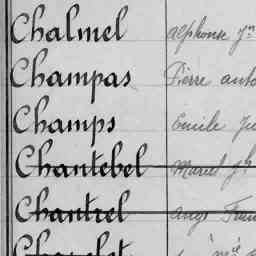 Chalmel Alphonse Jn
Champas Pierre anto
Champs Emile Ju
Chantebel Marcel Jh
Chantrel Augte Fran